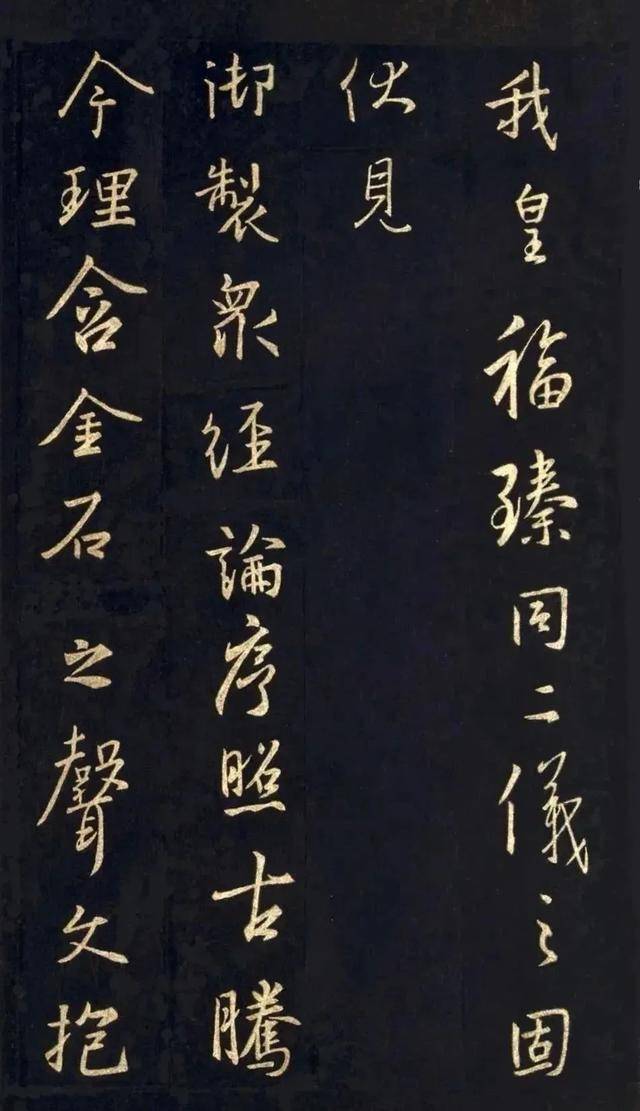 我皇福臻同二儀之固
伏見
御製眾經論序照古騰
今理含金石之聲文抱